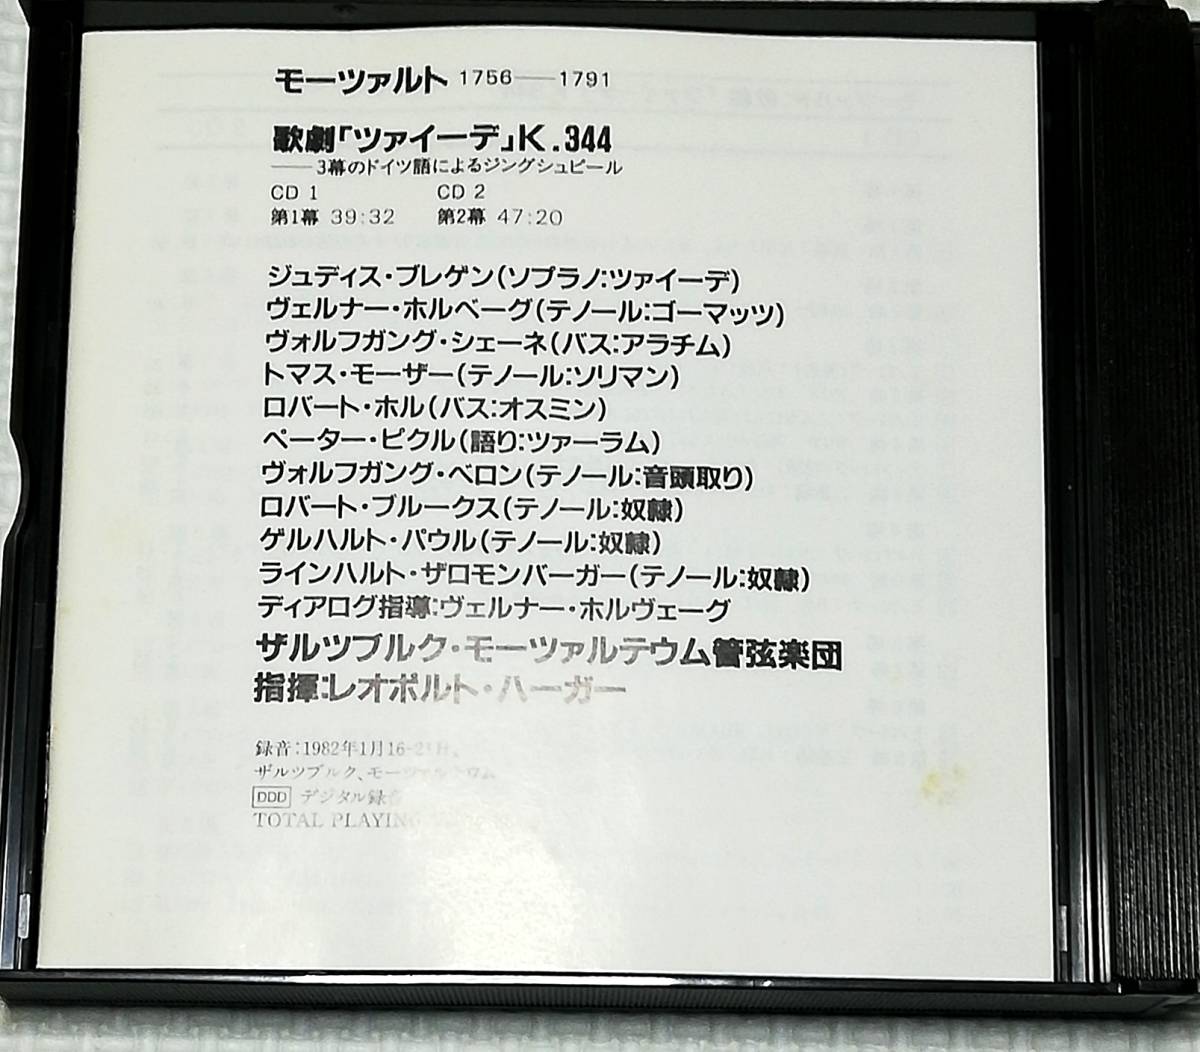 モーツァルト 1756——1791
歌劇「ツァイーデ」K.344
——3幕のドイツ語によるジングシュピール
CD 1 CD 2
第1幕 39:32 第2幕 47:20
ジュディス・ブレゲン(ソプラノ:ツァイーデ)
ヴェルナー・ホルベーグ(テノール:ゴーマッツ)
ヴォルフガング・シェーネ(バス:アラチム)
トマス・モーザー(テノール:ソリマン)
ロバート・ホル(バス:オスミン)
ペーター・ピクル(語り:ツァーラム)
ヴォルフガング・ベロン(テノール:音頭取り)
ロバート・ブルークス(テノール:奴隷)
ゲルハルト・パウル(テノール:奴隷)
ラインハルト・ザロモンバーガー(テノール:奴隷)
ディアログ指導:ヴェルナー・ホルヴェーグ
ザルツブルク・モーツァルテウム管弦楽団
指揮:レオポルト・ハーガー
録音:1982年1月16-
ザルツブルク、モーツァルテウム
DDD デジタル録音
TOTAL PLAYING